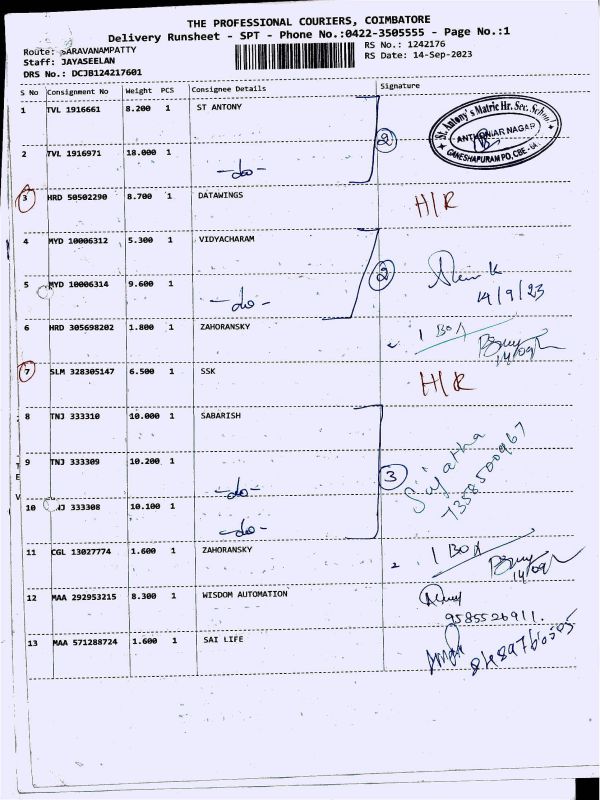 THE PROFESSIONAL COURIERS, COIMBATORE
Delivery Runsheet - SPT - Phone No.:0422-3505555 - Page No.:1
Route: SARAVANAMPATTY
RS No.: 1242176
Staff: JAYASEELAN
RS Date: 14-Sep-2023
DRS No.: DCJB124217601
S No Consignment No Weight PCS Consignee Details Signature
1 TVL 1916661 8.200 1 ST ANTONY
St. Antony's Matric Hr. Sec. School
ANTHONIAR NAGAR
GANESHAPURAM PO, CBE
2
2 TVL 1916971 18.000 1
-do-
3 HRD 50502290 8.700 1 DATAWINGS H/R
4 MYD 10006312 5.300 1 VIDYACHARAM
2
5 MYD 10006314 9.600 1
-do-
14/9/23
6 HRD 305698202 1.800 1 ZAHORANSKY 1 BOX
14/09
7 SLM 328305147 6.500 1 SSK H/R
8 TNJ 333310 10.000 1 SABARISH
Sujatha
7358500967
9 TNJ 333309 10.200 1
-do-
3
10 TNJ 333308 10.100 1
-do-
11 CGL 13027774 1.600 1 ZAHORANSKY 1 BOX
14/09
12 MAA 292953215 8.300 1 WISDOM AUTOMATION
9585526911.
13 MAA 571288724 1.600 1 SAI LIFE